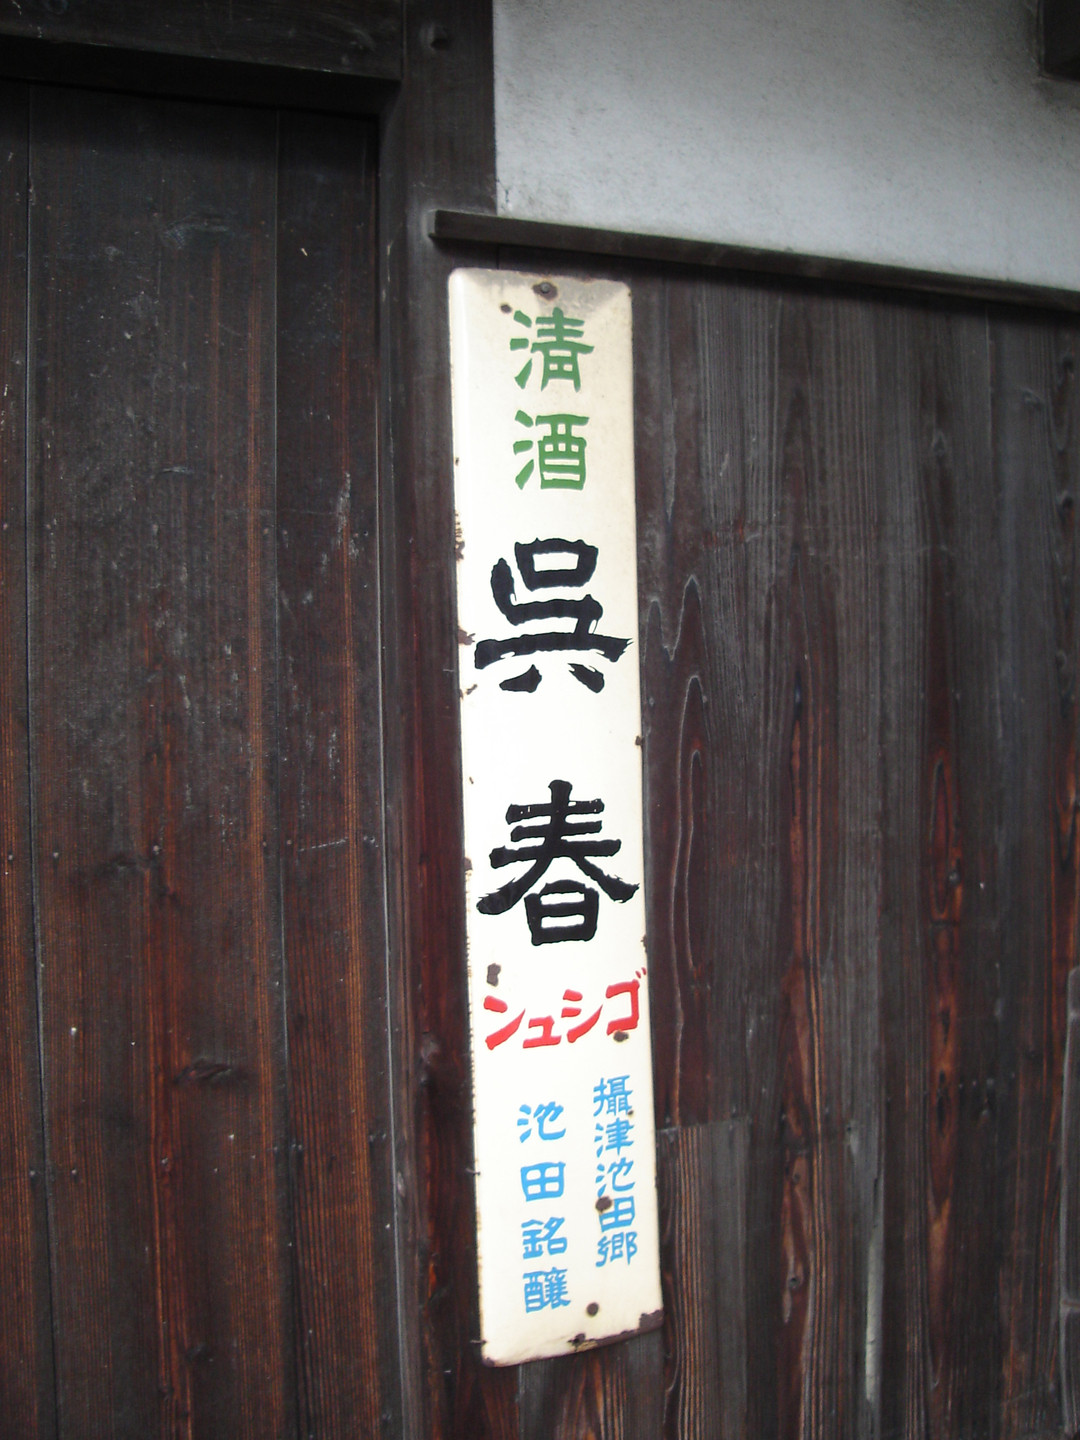 清酒
呉春
ゴシュン
攝津池田郷
池田銘醸